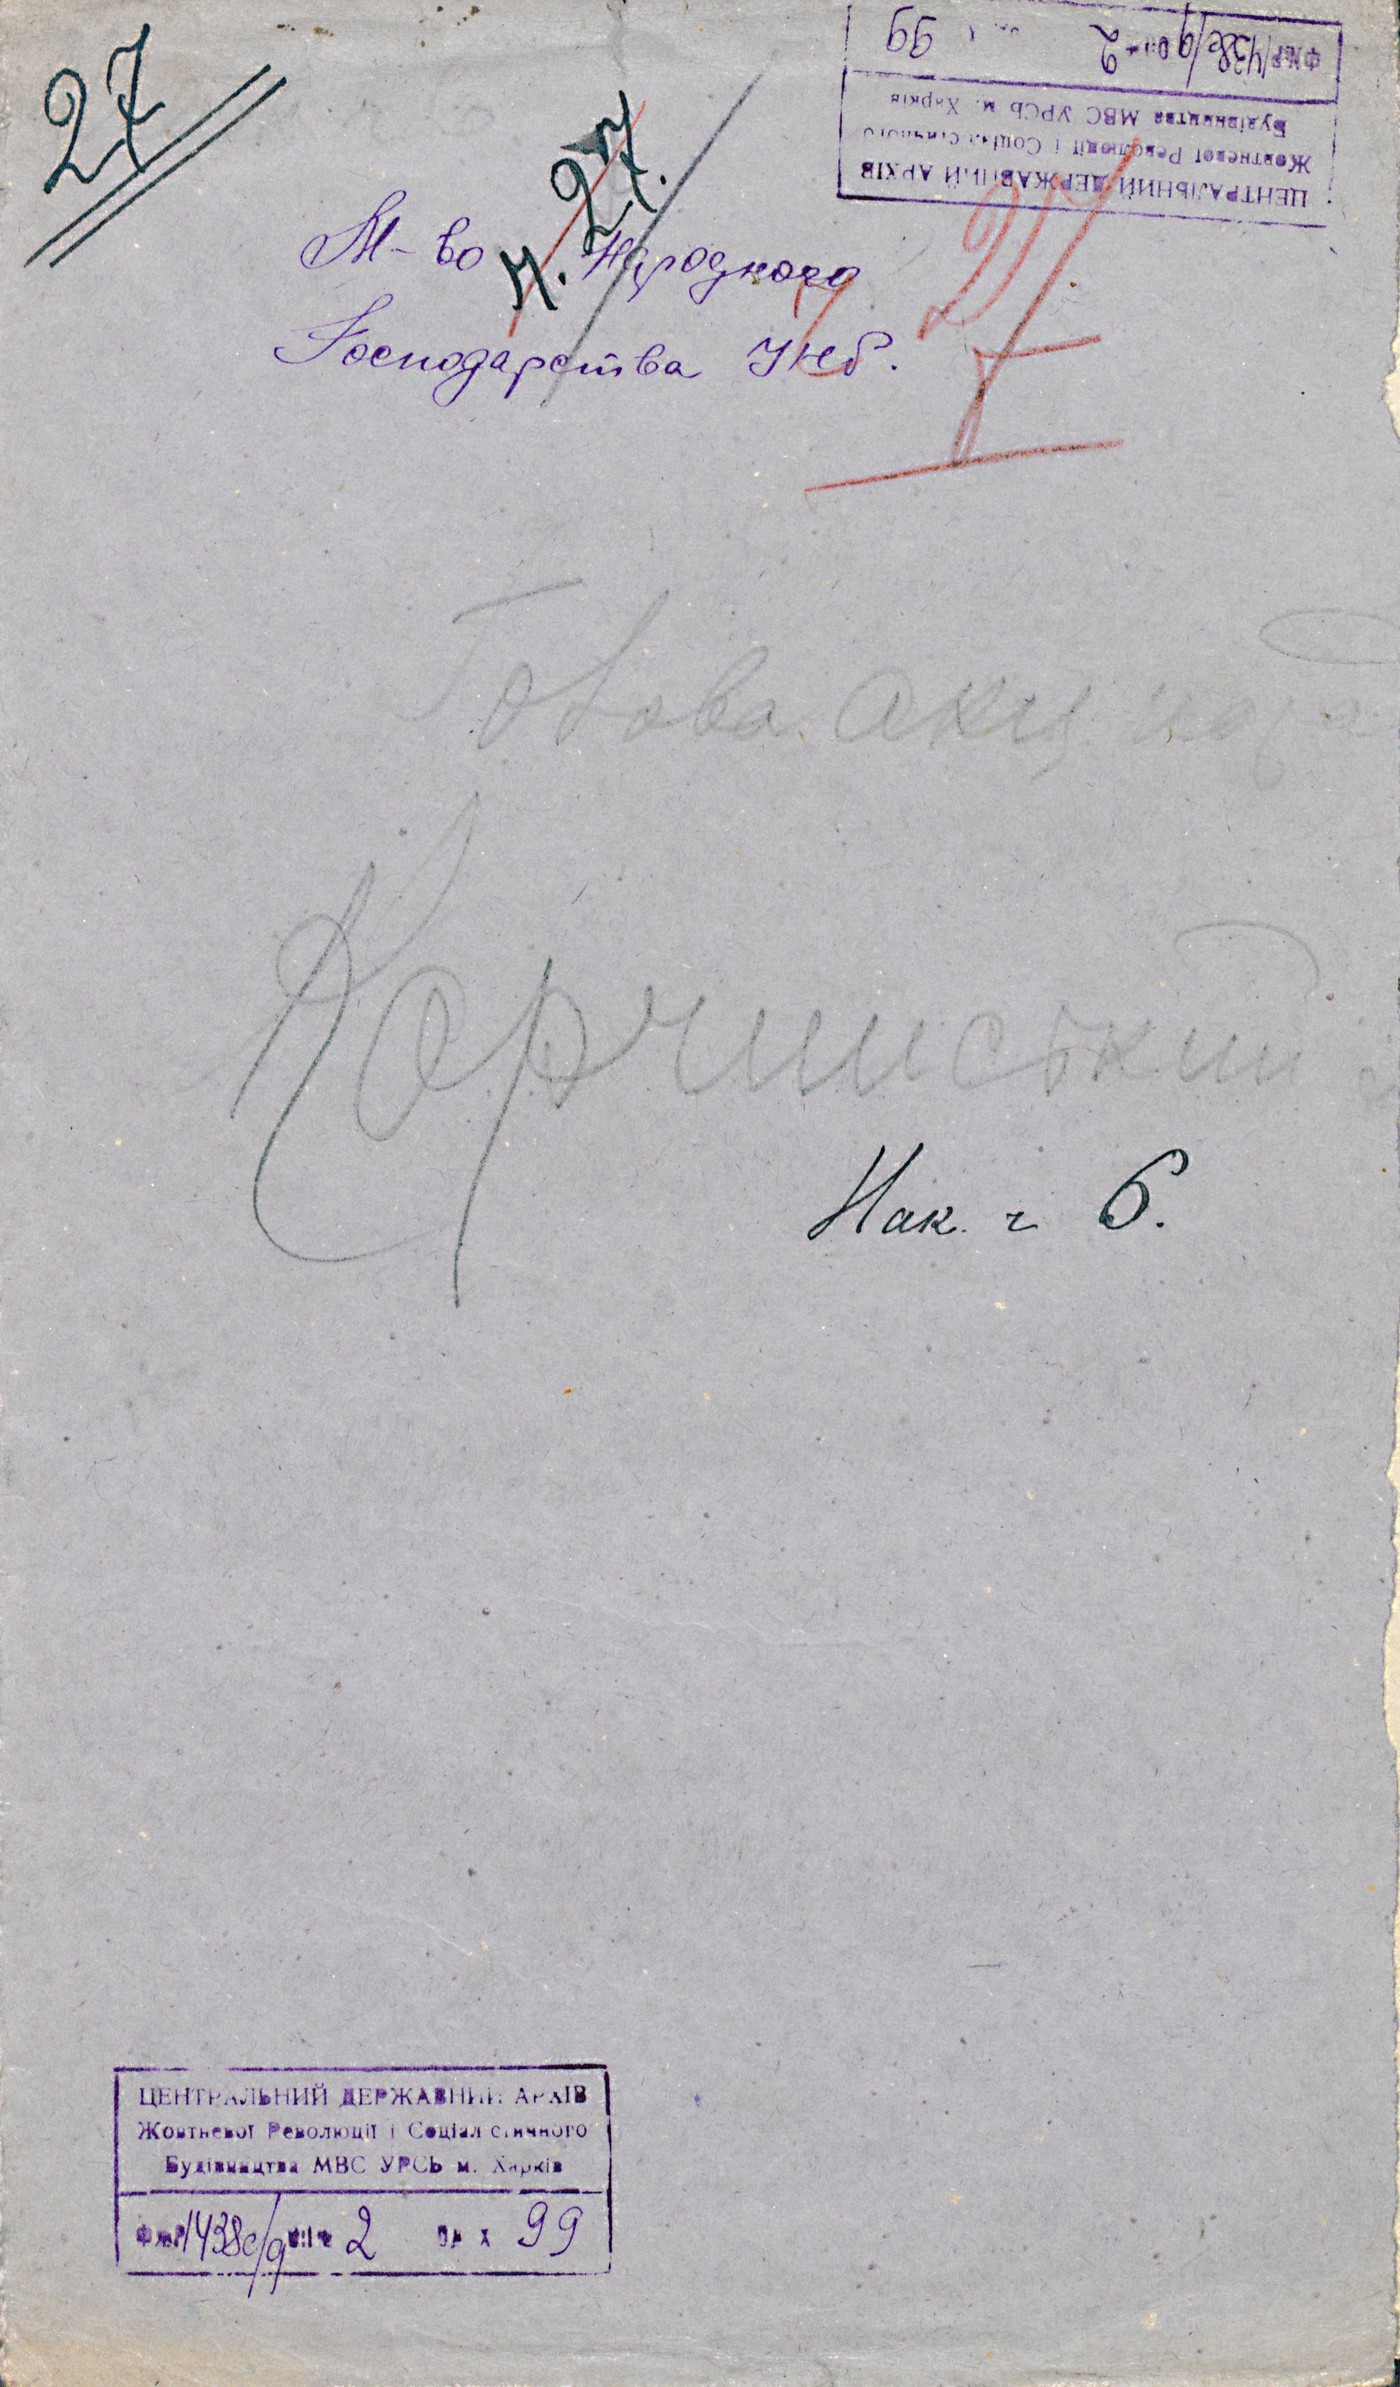 27
ЦЕНТРАЛЬНИЙ ДЕРЖАВНИЙ АРХІВ
Жовтневої Революції і Соціалістичного
Будівництва МВС УРСР м. Харків
Ф.№Р1438с/9 оп № 2 99
ч. 27.
27
М-во Народного
Господарства УНР.
Корчинський
Нак. ч 6.
ЦЕНТРАЛЬНИЙ ДЕРЖАВНИЙ АРХІВ
Жовтневої Революції і Соціалістичного
Будівництва МВС УРСР м. Харків
Ф.№Р1438с/9 оп № 2 од. х 99